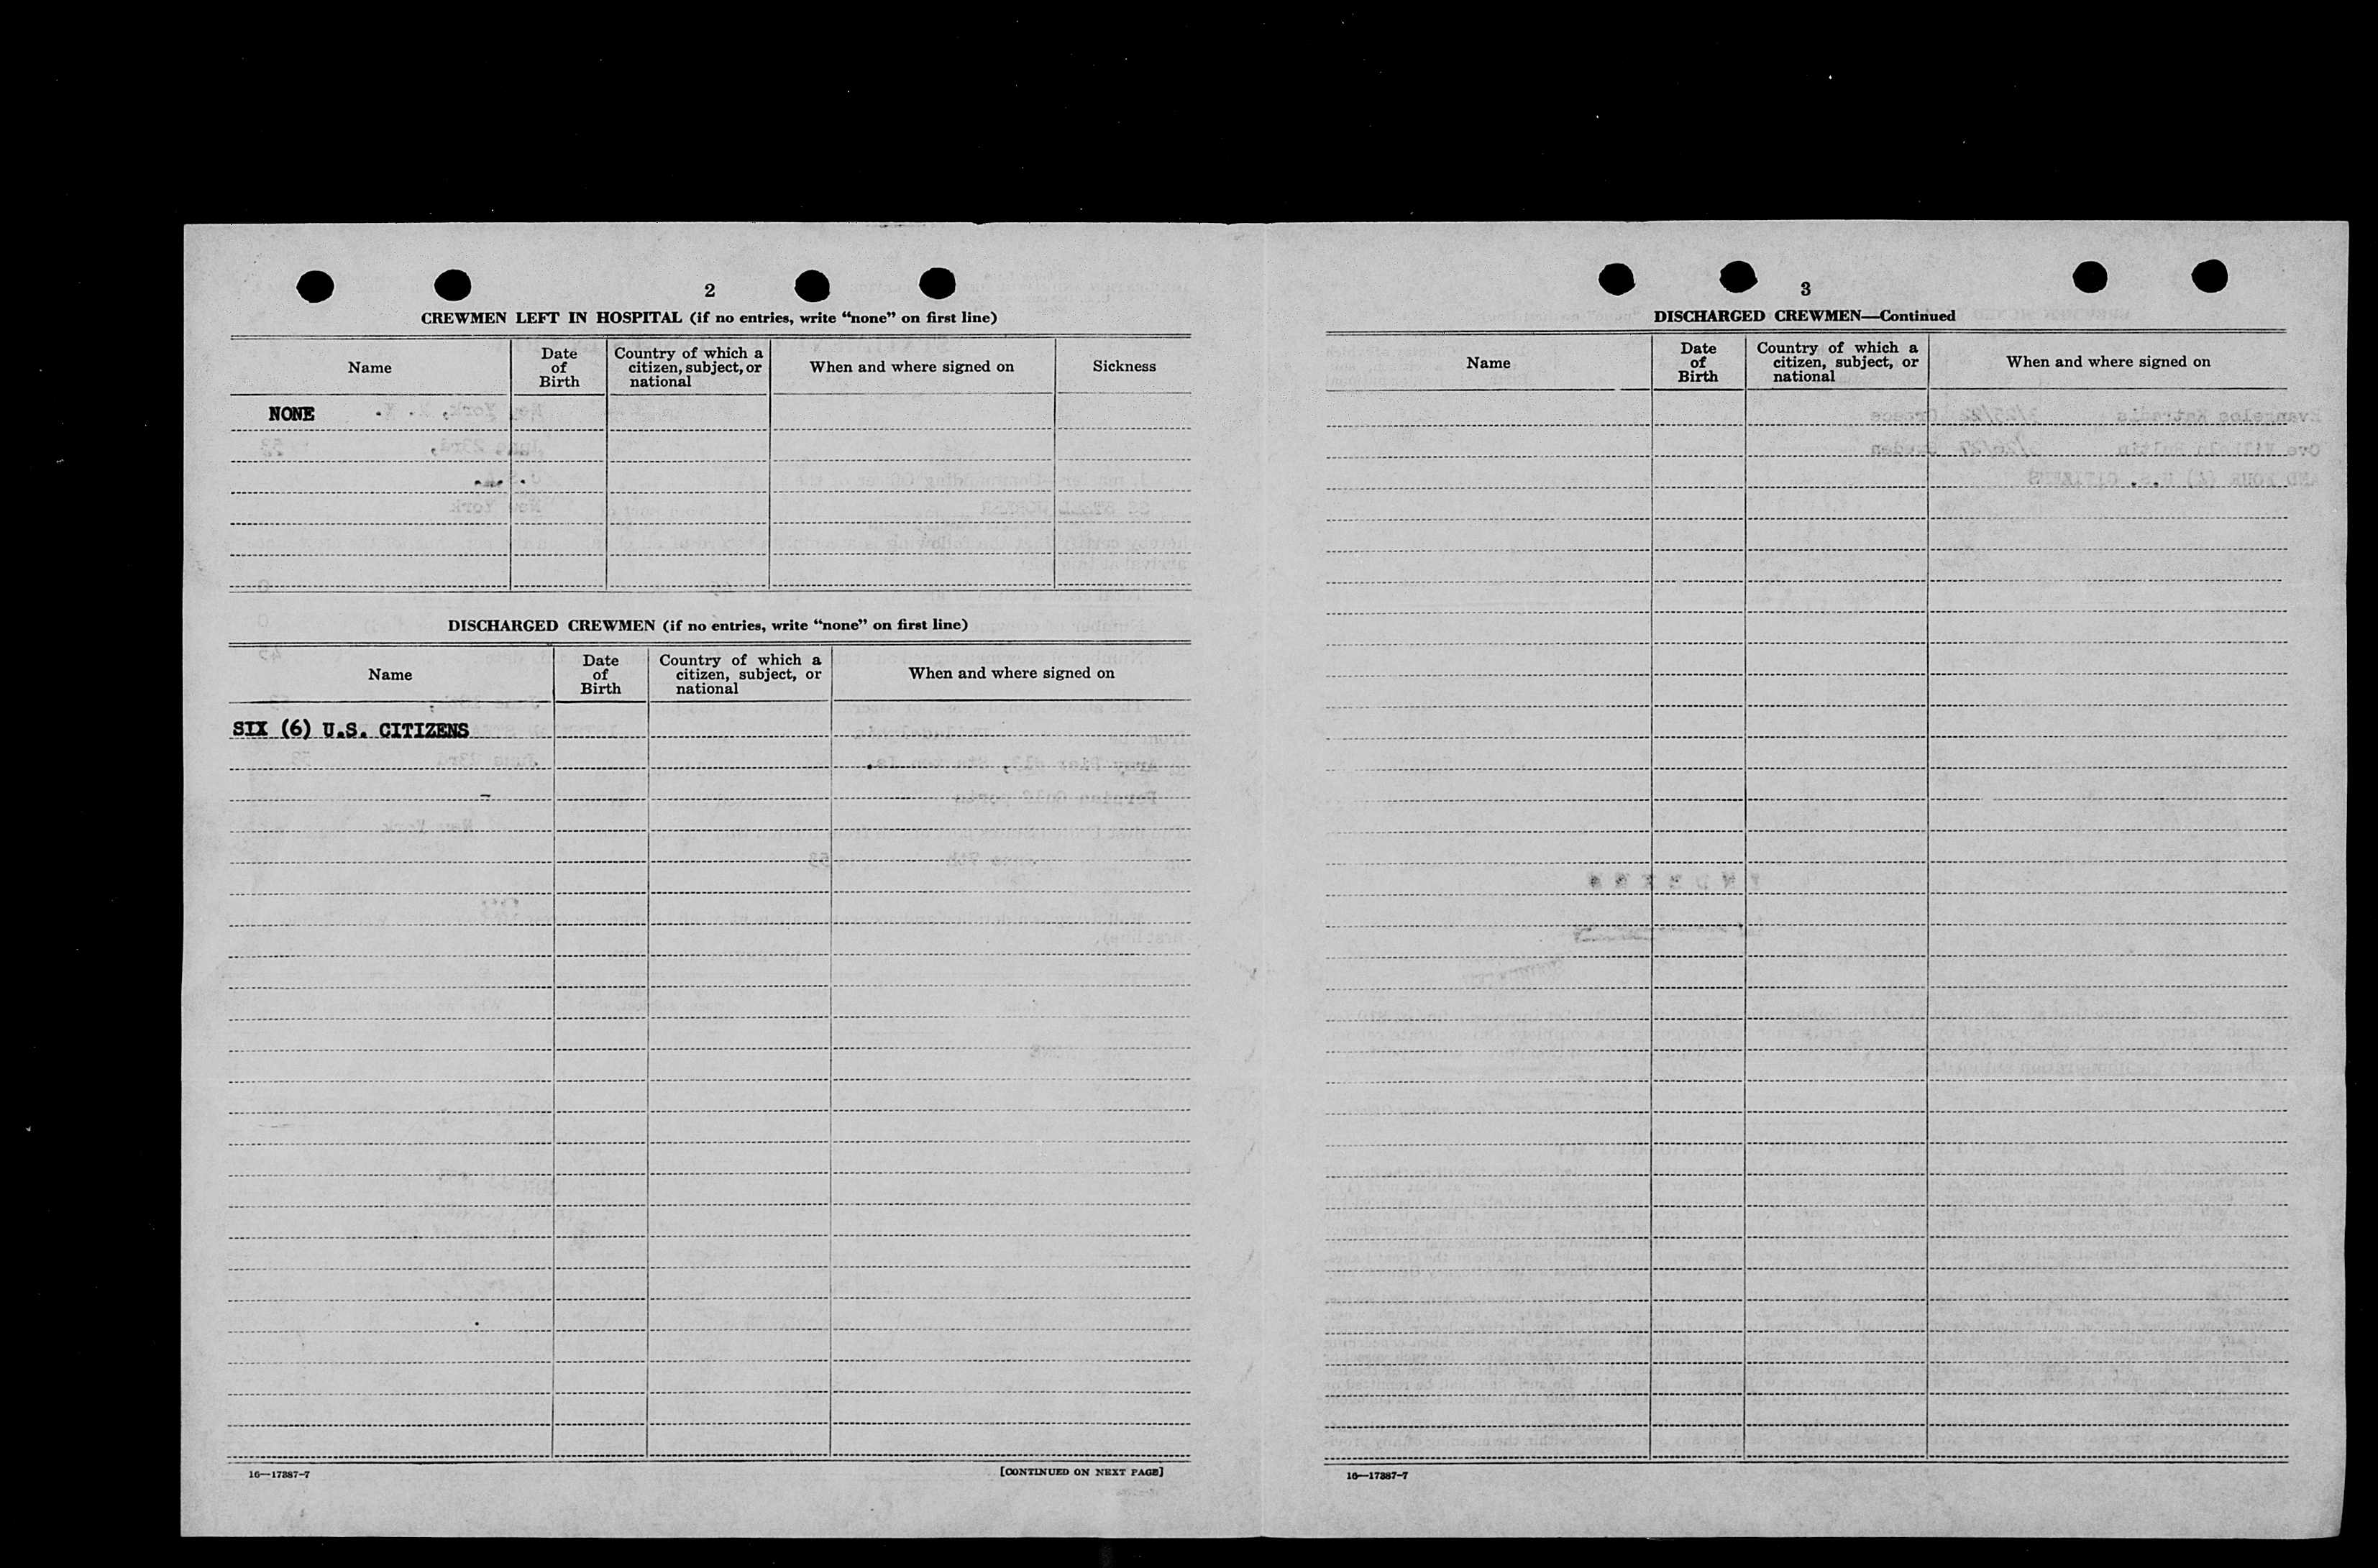 2
CREWMEN LEFT IN HOSPITAL (if no entries, write “none” on first line)
Name
Date of Birth
Country of which a citizen, subject, or national
When and where signed on
Sickness
NONE
DISCHARGED CREWMEN (if no entries, write “none” on first line)
Name
Date of Birth
Country of which a citizen, subject, or national
When and where signed on
SIX (6) U.S. CITIZENS
16—17387-7
[CONTINUED ON NEXT PAGE]
3
DISCHARGED CREWMEN—Continued
Name
Date of Birth
Country of which a citizen, subject, or national
When and where signed on
16—17387-7